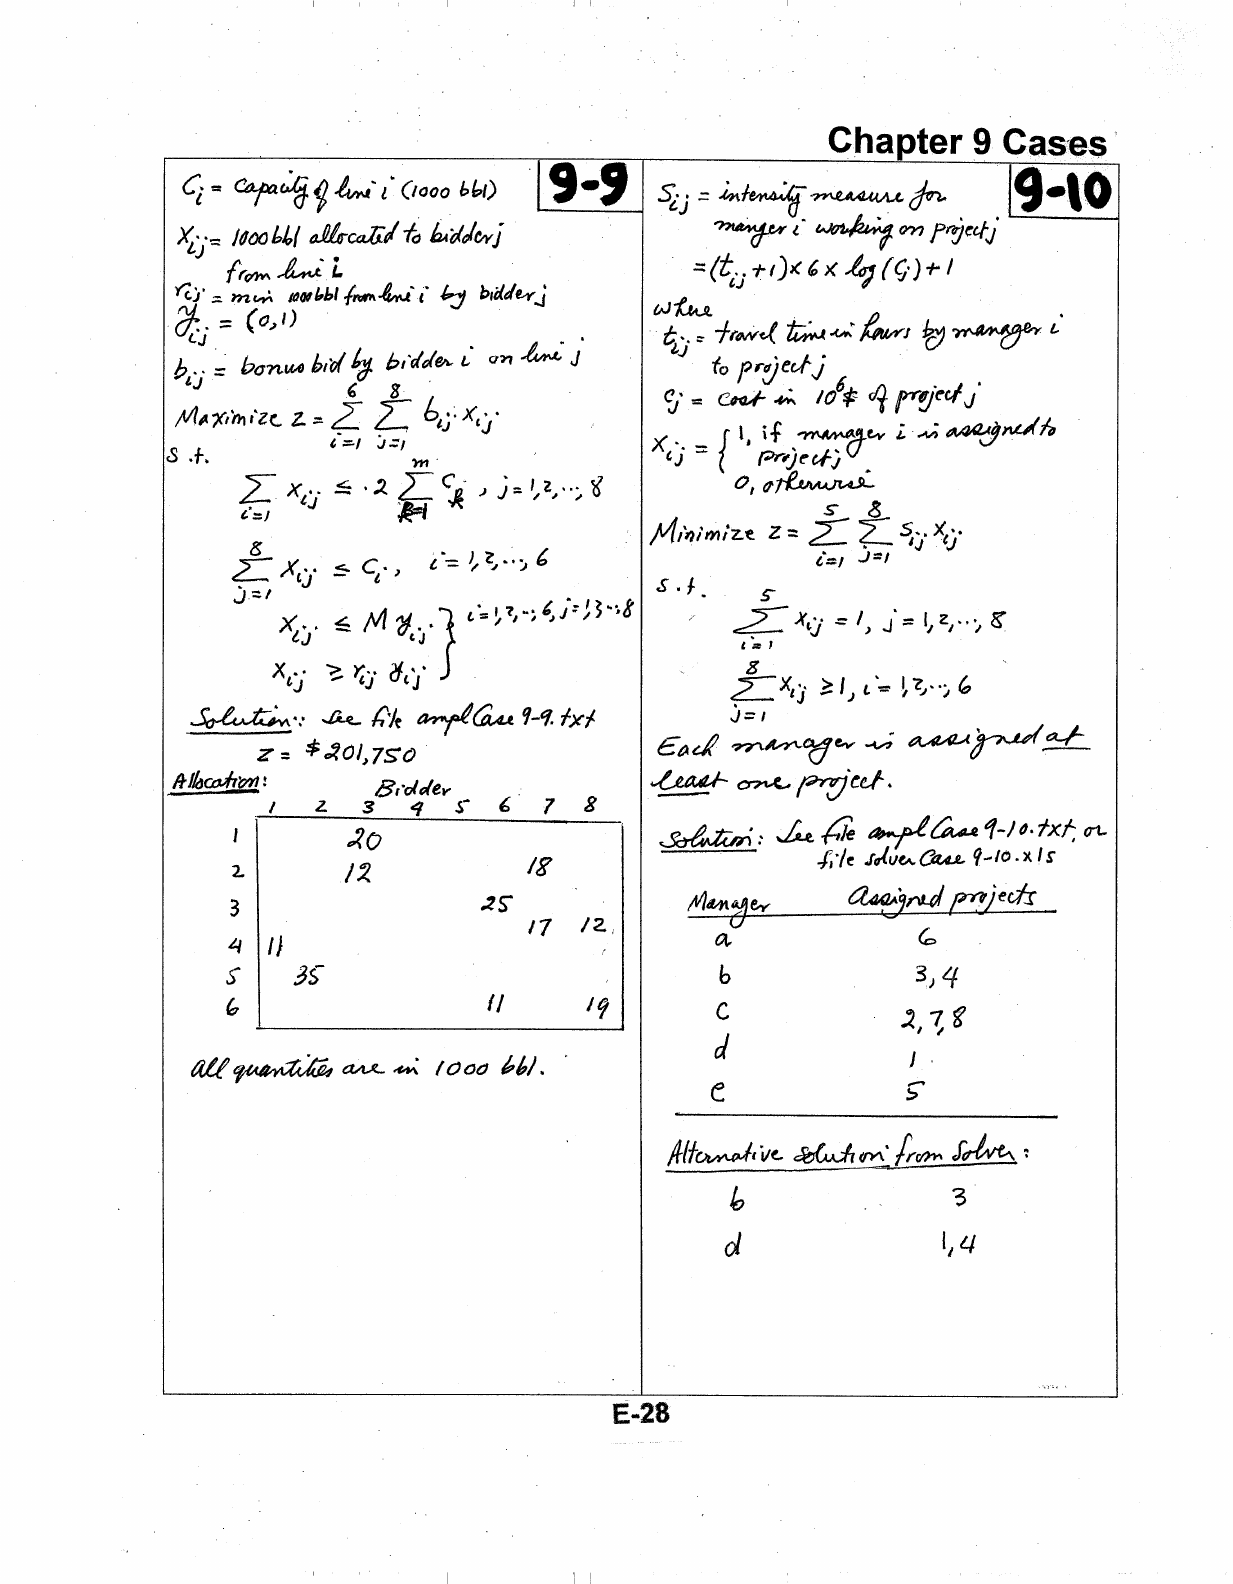 Chapter 9 Cases
9-9
C_i = capacity of line i (1000 bbl)
X_ij = 1000 bbl allocated to bidder j
from line i
r_ij = min 1000 bbl from line i by bidder j
y_ij = (0,1)
b_ij = bonus bid by bidder i on line j
Maximize z = ∑_{i=1}^{6} ∑_{j=1}^{8} b_ij x_ij
s.t.
∑_{i=1} x_ij ≤ .2 ∑_{k=1}^{m} C_k , j = 1,2,..., 8
∑_{j=1}^{8} x_ij ≤ C_i, i = 1,2,..., 6
x_ij ≤ M y_ij } i = 1,2,..., 6, j = 1,3...,8
x_ij ≥ r_ij y_ij
Solution: See file amplCase 9-9.txt
z = $201,750
Allocation:
Bidder
1 2 3 4 5 6 7 8
1 20
2 12 18
3 25
17 12
4 11
5 35
6 11 19
All quantities are in 1000 bbl.
9-10
S_ij = intensity measure for
manger i working on project j
= (t_ij + 1) x 6 x log (C_j) + 1
where
t_ij = travel time in hours by manager i
to project j
C_j = Cost in 10^6 $ of project j
X_ij = { 1, if manager i is assigned to
project j
0, otherwise
Minimize z = ∑_{i=1}^{5} ∑_{j=1}^{8} s_ij x_ij
s.t.
∑_{i=1}^{5} x_ij = 1, j = 1,2,..., 8
∑_{j=1}^{8} x_ij ≥ 1, i = 1,2,..., 6
Each manager is assigned at
least one project.
Solution: See file amplCase 9-10.txt, or
file solverCase 9-10.xls
Manager Assigned projects
a 6
b 3, 4
c 2, 7, 8
d 1
e 5
Alternative solution from Solver:
b 3
d 1, 4
E-28